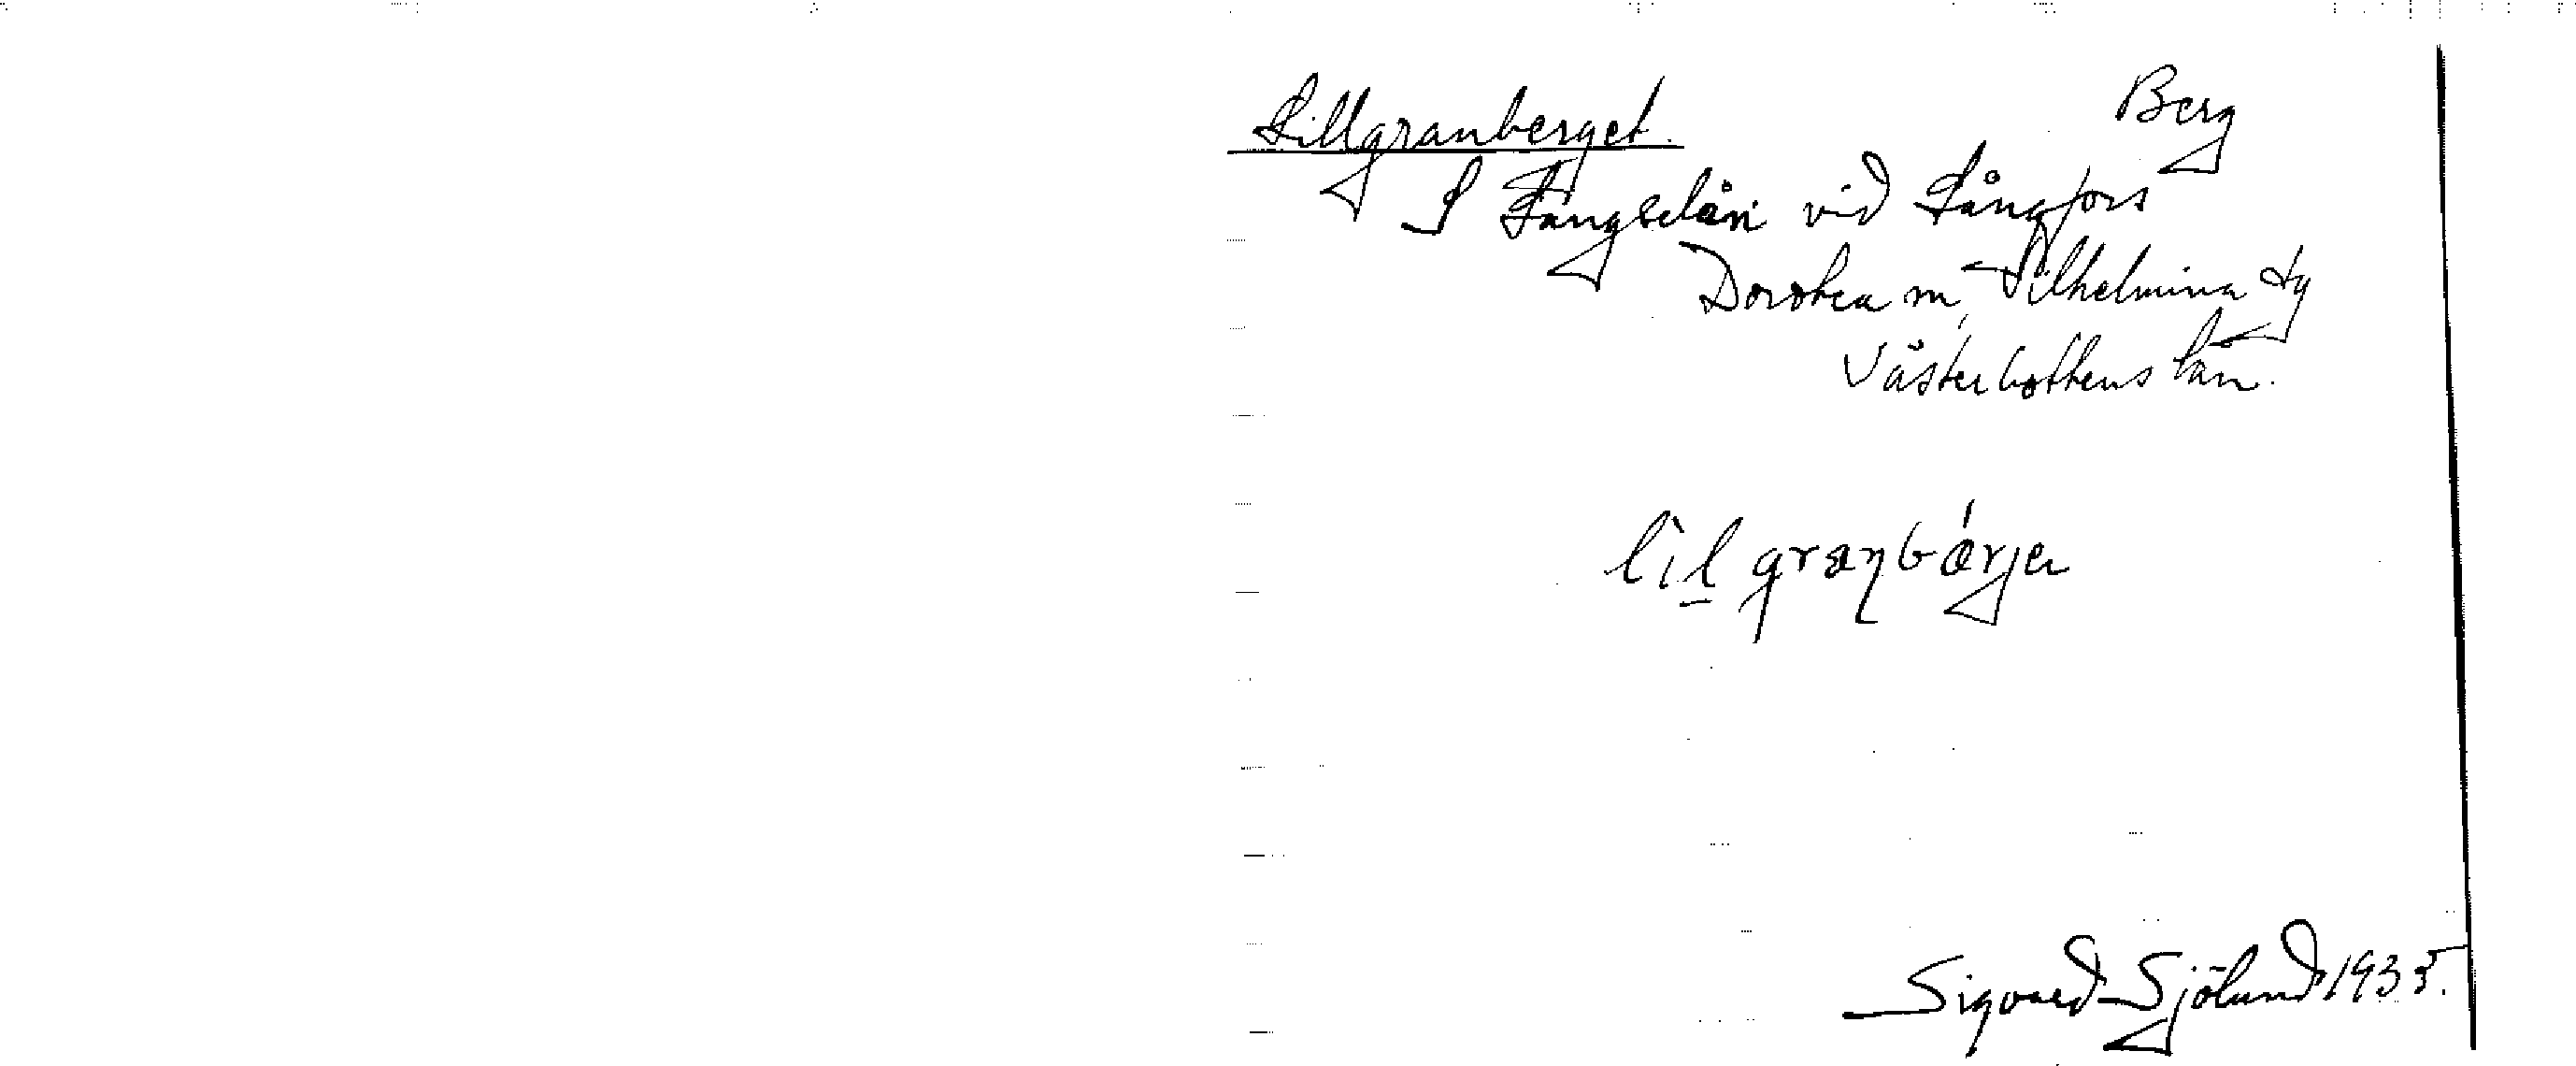 Lillgranberget. Berg
S Långselån vid Långfors
Dorotea m, Vilhelmina ty
Västerbottens län.
lìl graɳbǽrjeɩ
Sigvard Sjölund 1935.